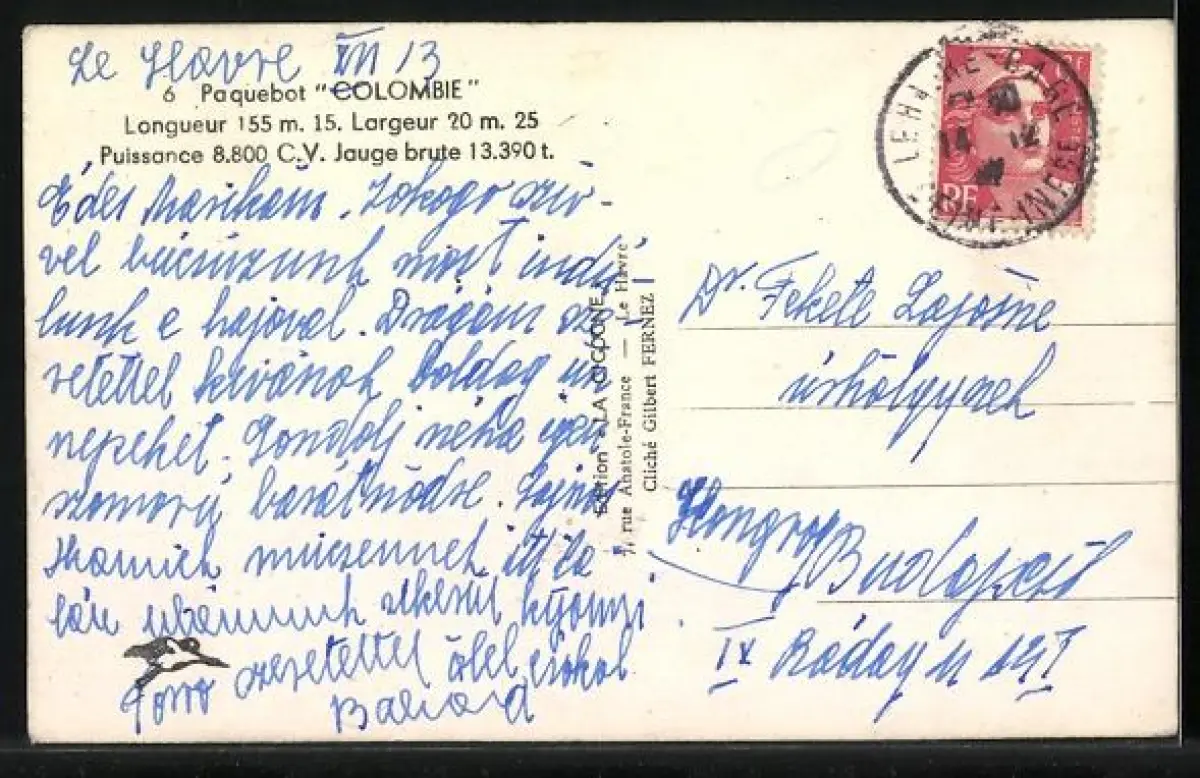 Le Havre XII 13
6 Paquebot "COLOMBIE"
Longueur 155 m. 15. Largeur 20 m. 25
Puissance 8.800 C.V. Jauge brute 13.390 t.
Édes Mariskám. Zokogo szív-
vel búcsúzunk most indu
lunk a hajóval. Drágám sze-
retettel kívánok boldog ün
nepeket. Gondolj néha igen
szomorú barátnődre.
itt
utánunk
Forró szeretettel ölel csókol
Edition "LA CIGOGNE"
rue Anatole-France — Le Havre
Cliché Gilbert FERNEZ
LE HAVRE-GARE
14 12
SEINE INFRE
RF
Dr. Fekete Lajosné
úrhölgynek
Hongroy
Budapest
IX Ráday u